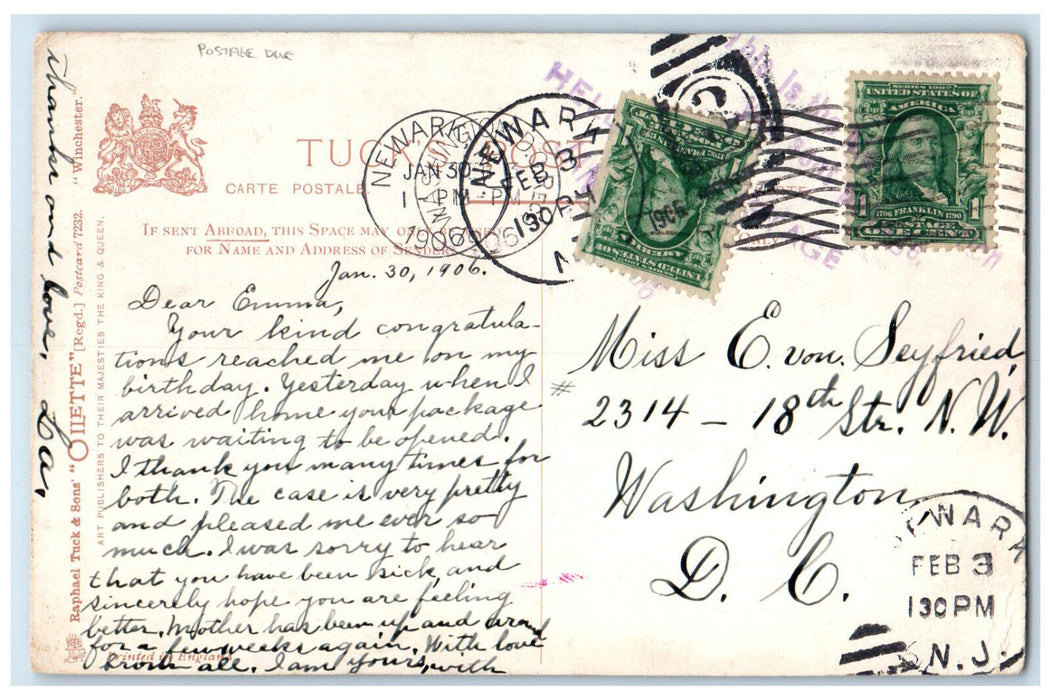 POSTAGE DUE
TUCK'S POST
CARTE POSTALE
IF SENT ABROAD, THIS SPACE MAY
FOR NAME AND ADDRESS OF SENDER
Jan. 30, 1906.
Dear Emma,
Your kind congratula-
tions reached me on my
birthday. Yesterday when I
arrived home your package
was waiting to be opened.
I thank you many times for
both. The case is very pretty
and pleased me ever so
much. I was sorry to hear
that you have been sick, and
sincerely hope you are feeling
better. Mother has been up and around
for a few weeks again. With love
from all. I am yours, with
thanks and love,
Raphael Tuck & Sons' "OILETTE" [Regd.] Postcard 7232. "Winchester."
ART PUBLISHERS TO THEIR MAJESTIES THE KING & QUEEN.
Printed in England
NEWARK
JAN 30
1 PM
1906
NEWARK
FEB 3
130 PM
N
1906
This is the
HE
AGE
SERIES 1902
UNITED STATES OF
AMERICA
1706 FRANKLIN 1790
POSTAGE
1 ONE CENT 1
UNITED STATES OF
AMERICA
Miss E. von. Seyfried,
# 2314 - 18th Str. N.W.
Washington
D. C.
NEWARK
FEB 3
130 PM
N.J.